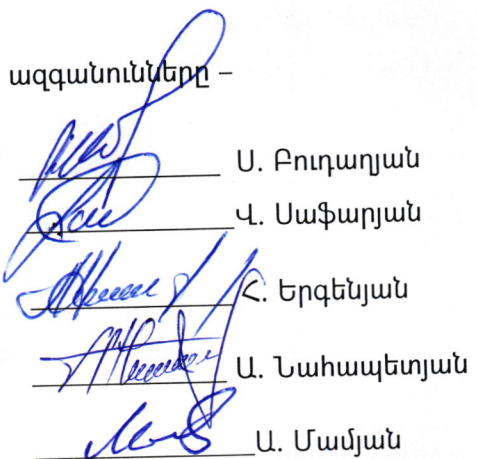 ազգանունները –
Ս. Բուդաղյան
Վ. Սաֆարյան
Հ. Երգենյան
Ա. Նահապետյան
Ա. Մամյան